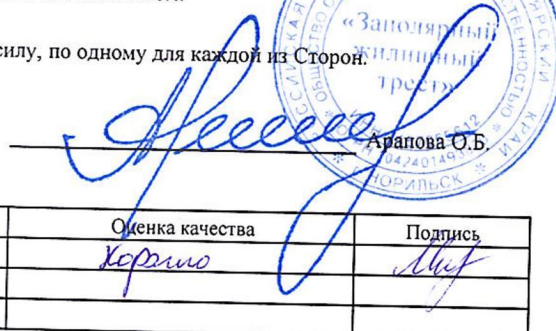 силу, по одному для каждой из Сторон.
«Заполярный
жилищный
трест»
НОРИЛЬСК
Арапова О.Б.
Оценка качества Подпись
Хорошо